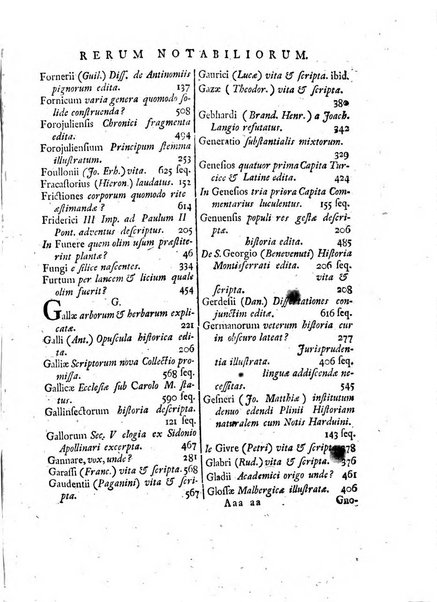 RERUM NOTABILIORUM.
Fornerii (Guil.) Diss. de Antinomiis
pignorum edita. 137
Fornicum varia genera quomodo so-
lide construenda? 508
Forojuliensis Chronici fragmenta
edita. 494
Forojuliensium Principum stemma
illustratum. 253
Foullonii (Jo. Erh.) vita. 625 seq.
Fracastorius (Hieron.) laudatus. 152
Frictiones corporum quomodo rite
æstimandæ? 614
Friderici III Imp. ad Paulum II
Pont. adventus descriptus. 205
In Funere quem olim usum præstite-
rint plantæ? 46
Fungi e silice nascentes. 334
Furtum per lancem & licium quale
olim fuerit? 454
G.
Gallæ arborum & herbarum expli-
catæ. 221
Galli (Ant.) Opuscula historica edi-
ta. 206
Galliæ Scriptorum nova Collectio pro-
missa. 568 seq.
Gallicæ Ecclesiæ sub Carolo M. sta-
tus. 590 seq.
Gallinsectorum historia descripta.
121 seq.
Gallorum Sec. V elogia ex Sidonio
Apollinari excerpta. 467
Gannare, vox, unde? 281
Garassi (Franc.) vita & scripta. 568
Gaudentii (Paganini) vita & scri-
pta. 567
Gaurici (Lucæ) vita & scripta. ibid.
Gazæ (Theodor.) vita & scripta.
380
Gebhardi (Brand. Henr.) a Joach.
Langio refutatur. 342
Generatio substantialis mixtorum.
329
Genesios quatuor prima Capita Tur-
cice & Latine edita. 424
In Genesios tria priora Capita Com-
mentarius luculentus. 155 seq.
Genuensis populi res gestæ descri-
ptæ. 206
historia edita. 485
De S. Georgio (Benevenuti) Historia
Monisferrati edita. 206 seq.
vita &
scripta. 208
Gerdesii (Dan.) Dissertationes con-
junctim editæ. 616 seq.
Germanorum veterum historia cur
in obscuro lateat? 277
Jurispruden-
tia illustrata. 406 seq.
linguæ addiscendæ ne-
cessitas. 545
Gesneri (Jo. Matthiæ) institutum
denuo edendi Plinii Historiam
naturalem cum Notis Harduini.
143 seq.
le Givre (Petri) vita & scripta. 378
Glabri (Rud.) vita & scripta. 376
Gladii Academici origo unde? 461
Glossæ Malbergicæ illustratæ. 406
Aaa aa Gno-